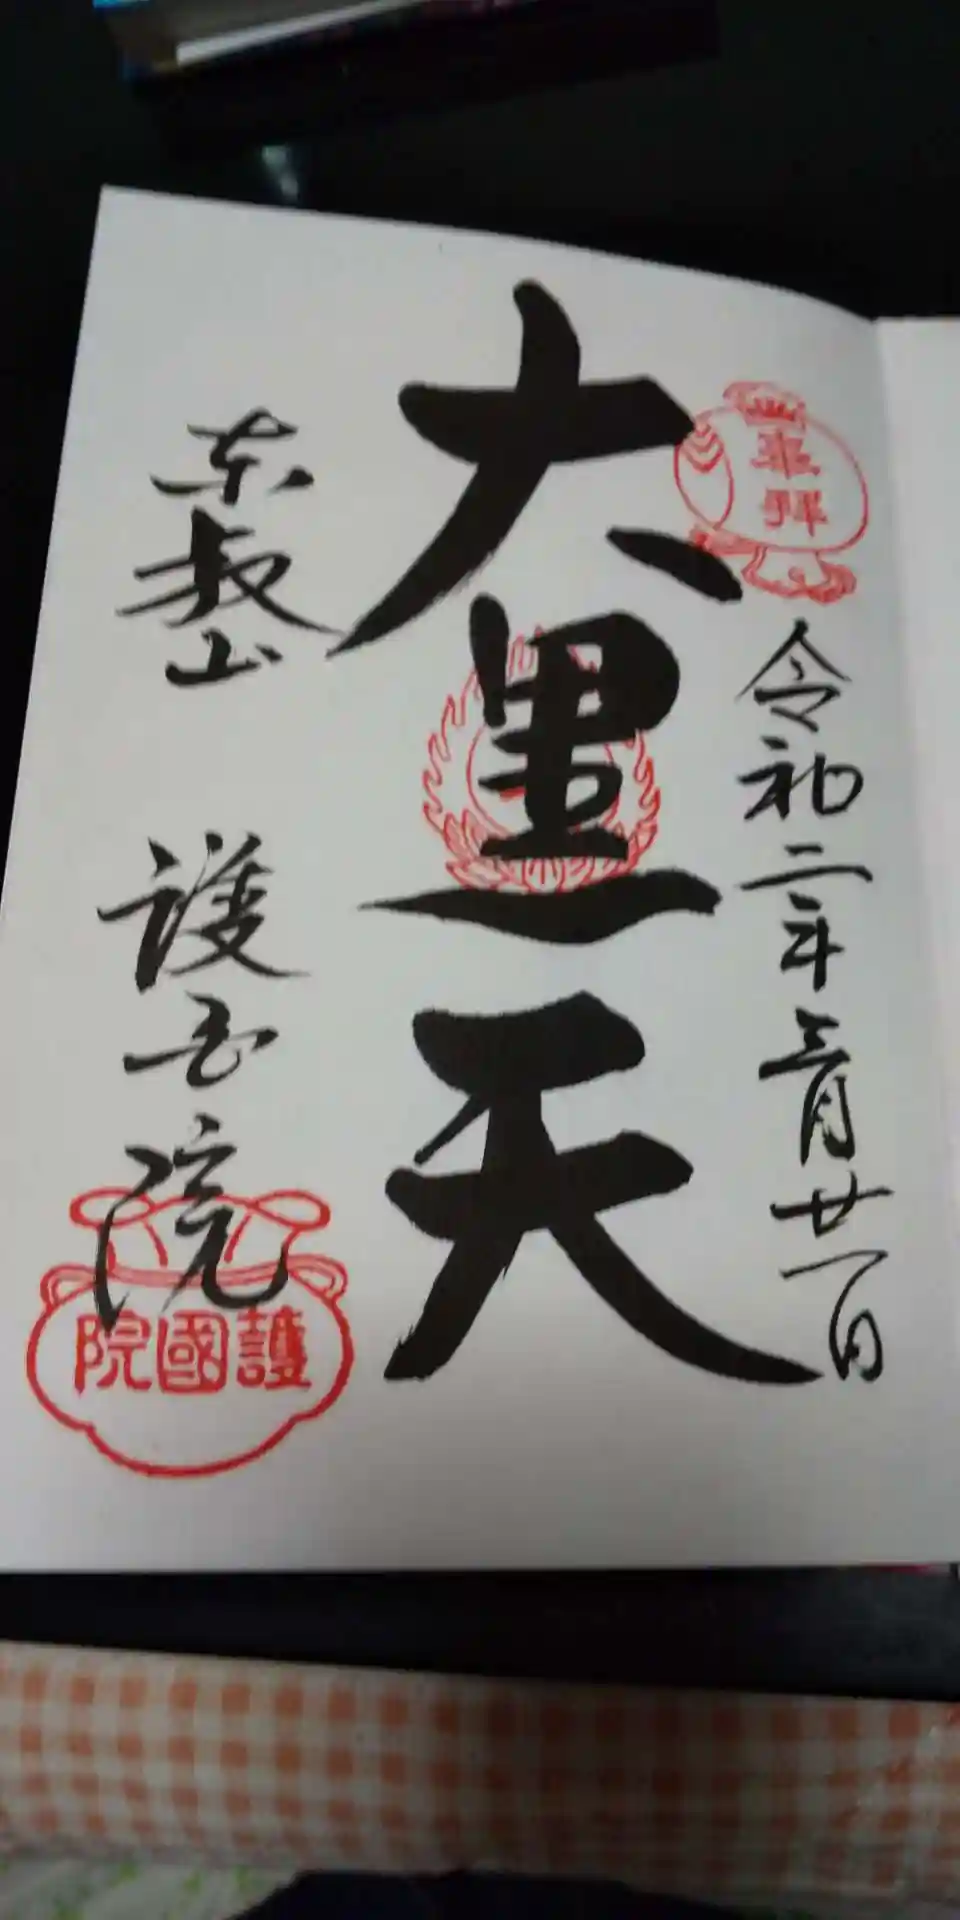 奉拝
令和二年三月廿一日
大黒天
東叡山 護国院
護國院